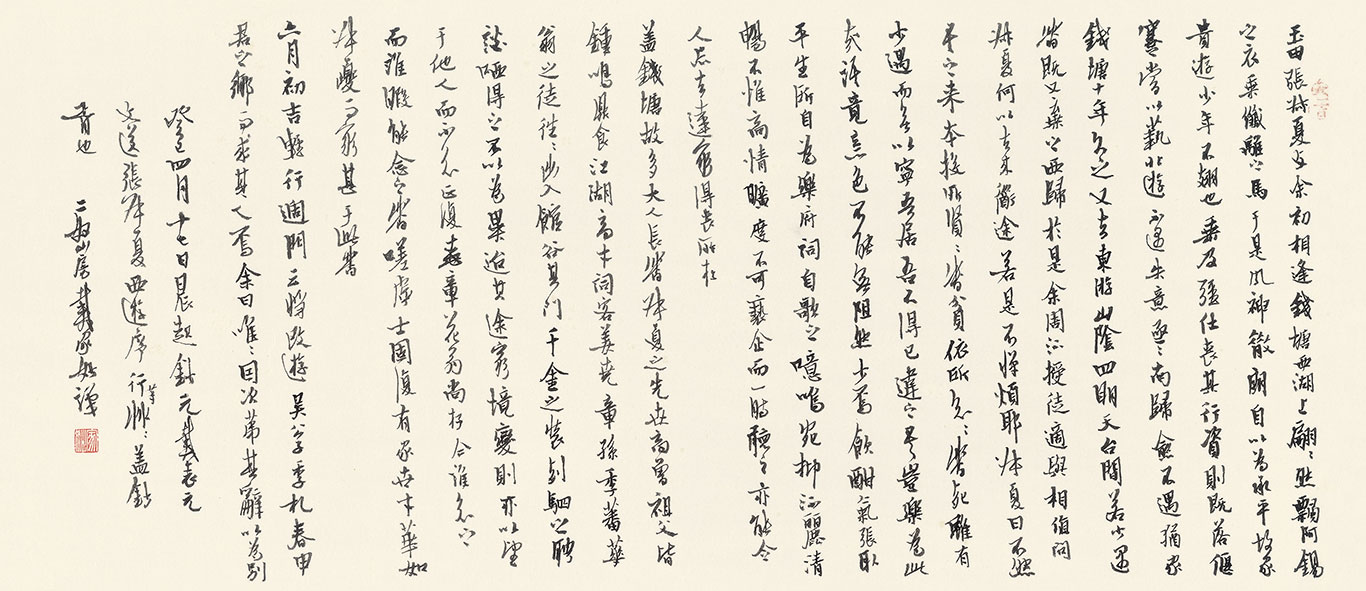 玉田張叔夏與余初相逢錢塘西湖上翩〻然飄阿錫
之衣乘纖離之馬于是風神散朗自以為承平故家
貴遊少年不翅也垂及强仕喪其行資則既落偃
蹇嘗以藝北遊不遇失意亟〻南歸愈不遇猶家
錢塘十年久之又去東游山陰四明天台間若少遇
者既又棄之西歸於是余周流授徒適與相值問
叔夏何以去來道途若是不憚煩耶叔夏曰不然
吾之來本投所賢〻者貧依所知〻者死雖有
少遇而無以寧吾居吾不得已違之吾豈樂為此
哉語竟意色不能無阻然少焉飲酣氣張取
平生所自為樂府詞自歌之噫嗚宛抑流麗清
暢不惟高情曠度不可褻企而一時聽之亦能令
人忘去達窮得喪所在
蓋錢塘故多大人長者叔夏之先世高曾祖父皆
鍾鳴鼎食江湖高才詞客姜堯章孫季蕃華
翁之徒往〻出入館谷其門千金之裝列駟之聘
談哂得之不以為異迨其途窮境變則亦以望
于他人而不知正復堯章花翁尚存今誰知之
而誰暇能念之者嗟虖士固復有家世才華如
叔夏而窮甚于此者
六月初吉輕行過門云將改遊吳公子季札春申
君之鄉而求其人焉余曰唯〻因次第其辭以為別
癸巳四月十七日晨起鈔元戴表元
文送張叔夏西遊序行草
也 山房